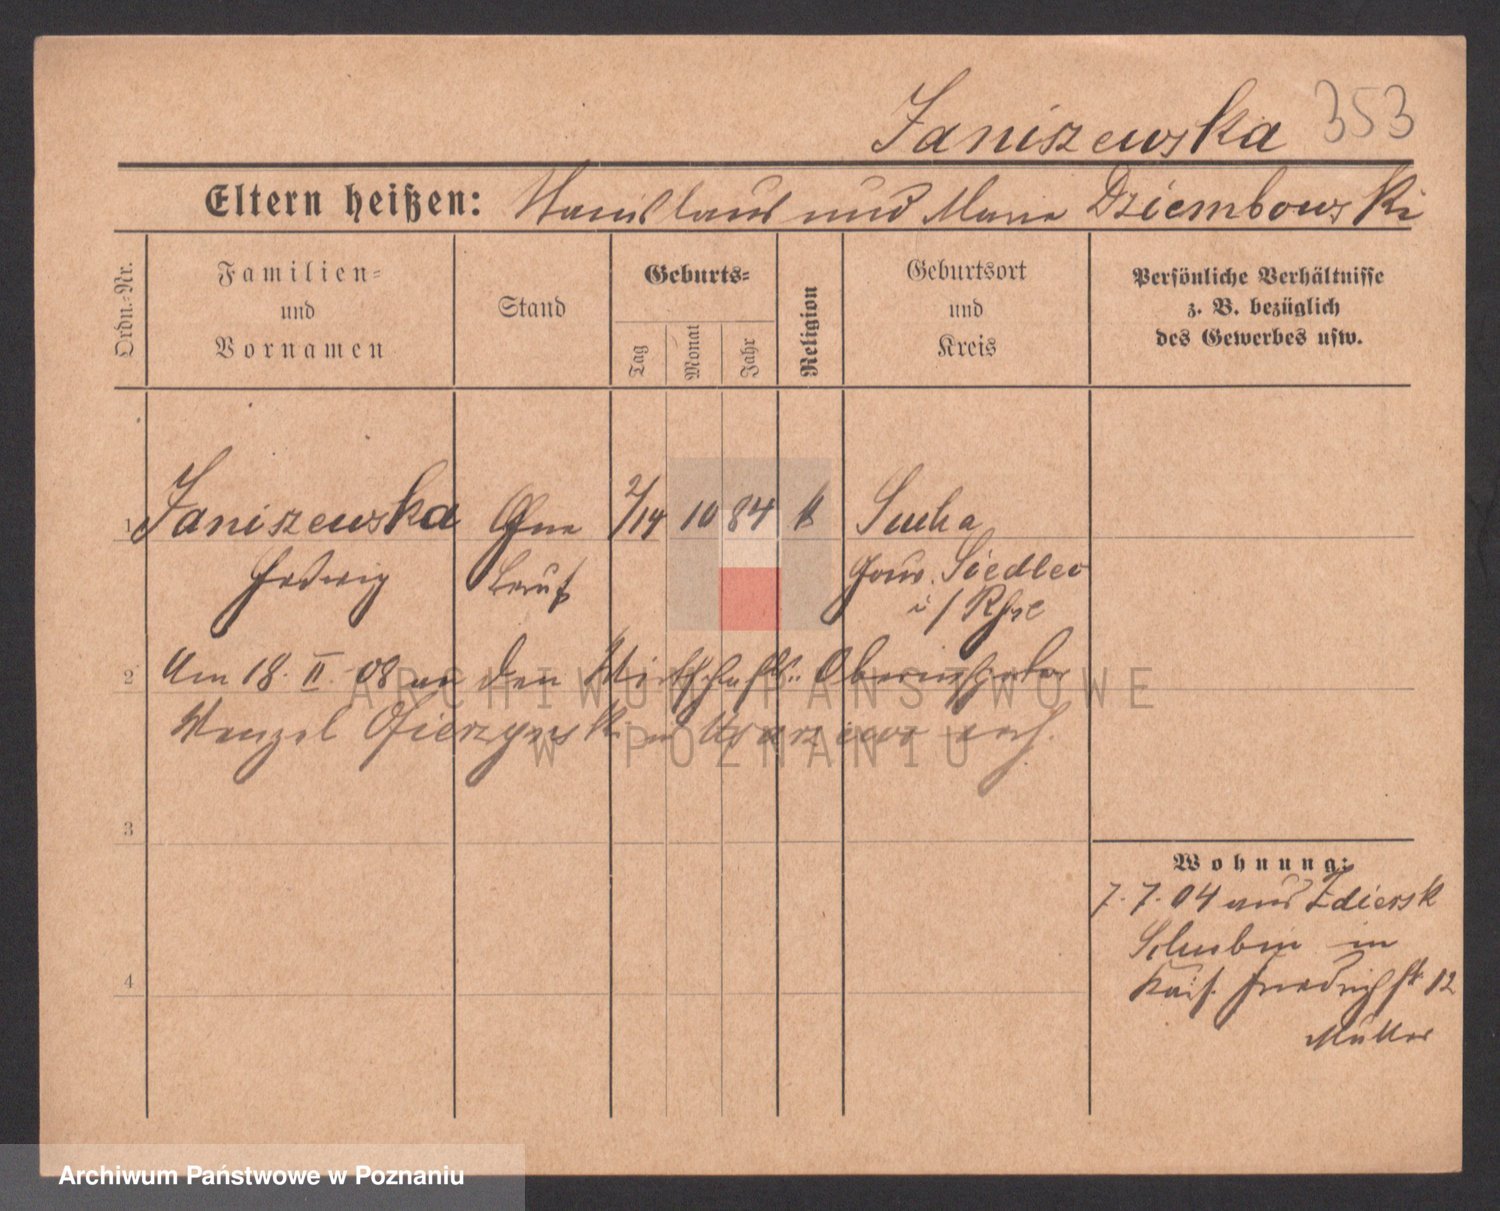 Janiszewska 353
Eltern heißen: Stanislaus und Maria Dziembowski
Ordn.-Nr.
Familien-
und
Vornamen
Stand
Geburts-
Tag
Monat
Jahr
Religion
Geburtsort
und
Kreis
Persönliche Verhältnisse
z. B. bezüglich
des Gewerbes usw.
1 Janiszewska Ohne 2/14 10 84 k Sucha
Hedwig Beruf Gouv. Siedlec
i/Rße
2 Am 18. II. 08 an den Wirtschafts- Oberinspektor
Wenzel in verh.
3
4
Wohnung:
7. 7. 04 aus Zdiersk
Schubin in
Kais. Friedrich str 12
Mutter
ARCHIWUM PAŃSTWOWE
W POZNANIU
Archiwum Państwowe w Poznaniu